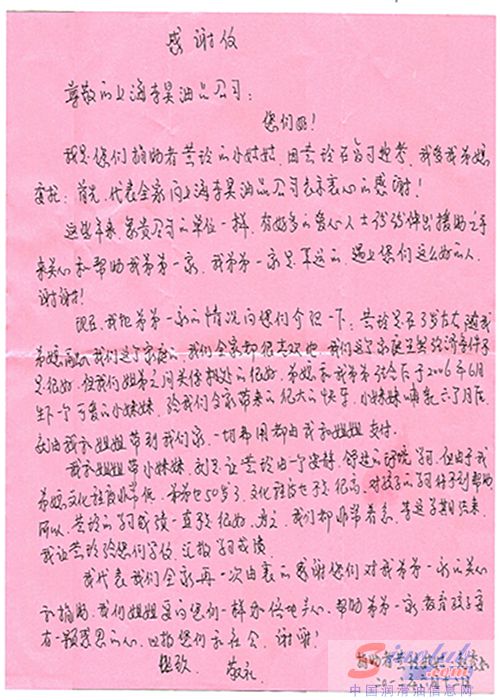 感谢信
尊敬的上海李昊油品公司：
您们好！
我是您们捐助者芸玲的小姑姑，因芸玲在复习迎考，我受我弟媳
委托：首先，代表全家向上海李昊油品公司表示衷心的感谢！
这些年来，象贵公司的单位一样，有好多的爱心人士纷纷伸出援助之手
来关心和帮助我弟弟一家，我弟弟一家是幸运的，遇上您们这么好的人，
谢谢！
现在，我把弟弟一家的情况向您们介绍一下：芸玲是在3岁左右随我
弟媳 我们这个家庭的，我们全家都很喜欢她，我们这个家庭虽然经济条件不
是很好，但我们姐弟之间关系相处的很好。弟媳和我弟弟结合后于2006年6月
生下一个可爱的小妹妹，给我们全家带来的很大的快乐，小妹妹哺乳六个月后，
就由我和姐姐带到我们家，一切费用都由我和姐姐支付。
我和姐姐带小妹妹，就是让芸玲由一个安静、舒适的环境学习，但由于我
弟媳文化程度非常低，弟弟也50岁了，文化程度也不是很高，对孩子的学习什么帮助
所以，芸玲的学习成绩一直不是很好，为之，我们都非常着急，等这学期结束，
我让芸玲给您们写信，汇报学习成绩。
我代表我们全家再一次由衷的感谢您们对我弟弟一家的关心
和捐助，我们姐姐要向您们一样 地关心，帮助弟弟一家，教育孩子要
有一颗感恩的心，回报您们和社会，谢谢！
此致 敬礼
捐助者芸玲
Sinolub.com
中国润滑油信息网